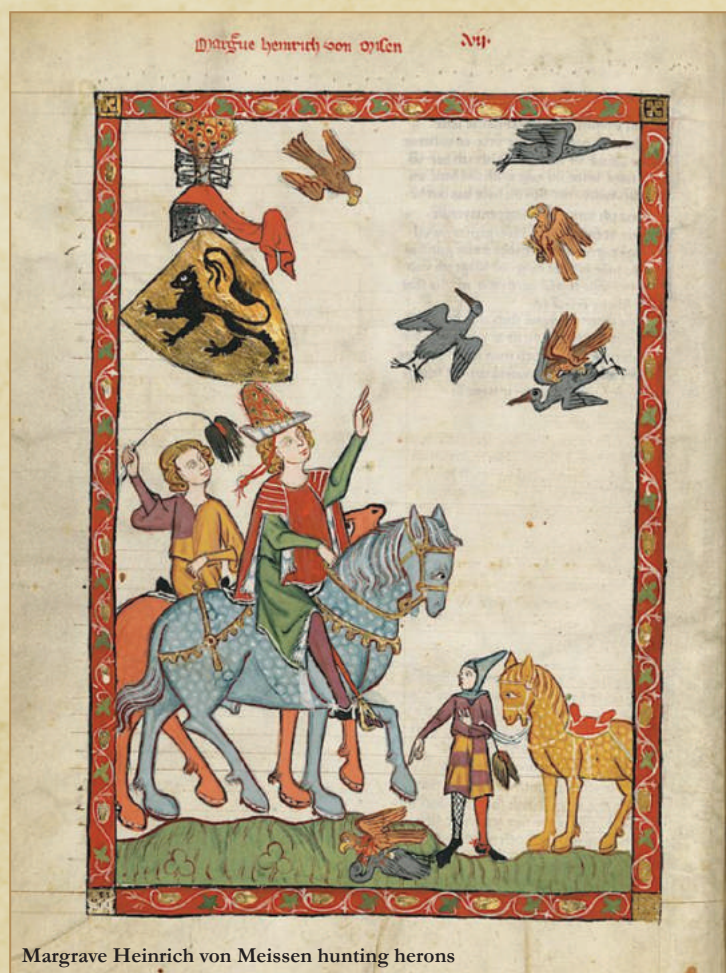 Margͬue heinrich von Misen vij·
Margrave Heinrich von Meissen hunting herons